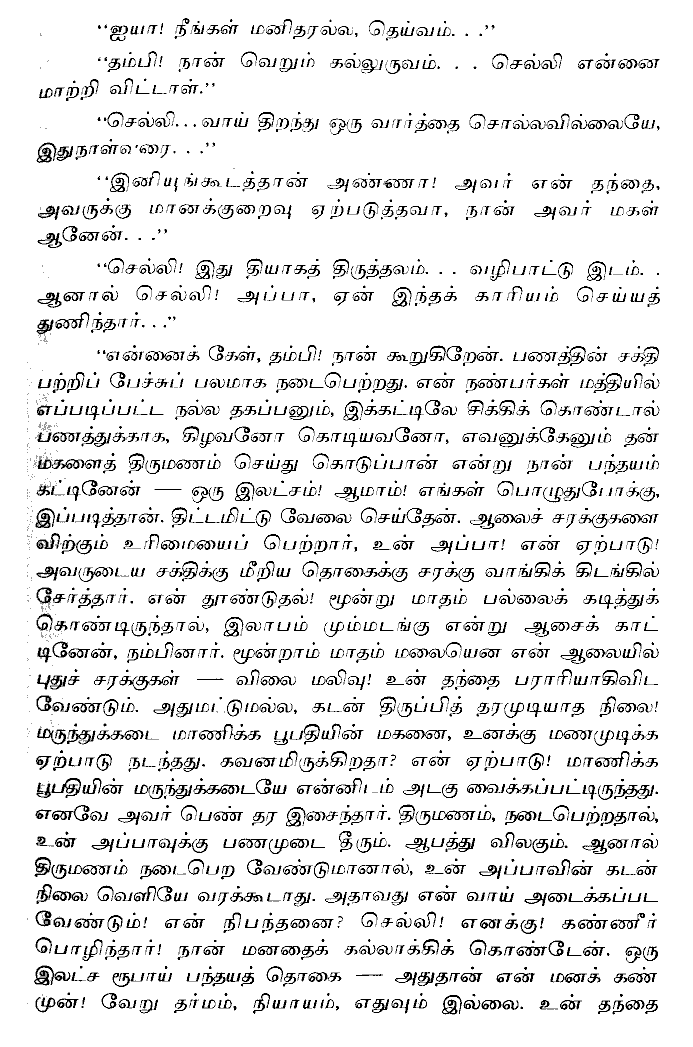 “ஐயா! நீங்கள் மனிதரல்ல, தெய்வம். . .”
“தம்பி! நான் வெறும் கல்லுருவம். . . செல்லி என்னை
மாற்றி விட்டாள்.”
“செல்லி...வாய் திறந்து ஒரு வார்த்தை சொல்லவில்லையே,
இதுநாள்வரை. . .”
“இனியுங்கூடத்தான் அண்ணா! அவர் என் தந்தை,
அவருக்கு மானக்குறைவு ஏற்படுத்தவா, நான் அவர் மகள்
ஆனேன். . .”
“செல்லி! இது தியாகத் திருத்தலம். . . வழிபாட்டு இடம். .
ஆனால் செல்லி! அப்பா, ஏன் இந்தக் காரியம் செய்யத்
துணிந்தார். . .”
“என்னைக் கேள், தம்பி! நான் கூறுகிறேன். பணத்தின் சக்தி
பற்றிப் பேச்சுப் பலமாக நடைபெற்றது. என் நண்பர்கள் மத்தியில்
எப்படிப்பட்ட நல்ல தகப்பனும், இக்கட்டிலே சிக்கிக் கொண்டால்
பணத்துக்காக, கிழவனோ கொடியவனோ, எவனுக்கேனும் தன்
மகளைத் திருமணம் செய்து கொடுப்பான் என்று நான் பந்தயம்
கட்டினேன் — ஒரு இலட்சம்! ஆமாம்! எங்கள் பொழுதுபோக்கு,
இப்படித்தான். திட்டமிட்டு வேலை செய்தேன். ஆலைச் சரக்குகளை
விற்கும் உரிமையைப் பெற்றார், உன் அப்பா! என் ஏற்பாடு!
அவருடைய சக்திக்கு மீறிய தொகைக்கு சரக்கு வாங்கிக் கிடங்கில்
சேர்த்தார். என் தூண்டுதல்! மூன்று மாதம் பல்லைக் கடித்துக்
கொண்டிருந்தால், இலாபம் மும்மடங்கு என்று ஆசைக் காட்
டினேன், நம்பினார். மூன்றாம் மாதம் மலையென என் ஆலையில்
புதுச் சரக்குகள் — விலை மலிவு! உன் தந்தை பராரியாகிவிட
வேண்டும். அதுமட்டுமல்ல, கடன் திருப்பித் தரமுடியாத நிலை!
மருந்துக்கடை மாணிக்க பூபதியின் மகனை, உனக்கு மணமுடிக்க
ஏற்பாடு நடந்தது. கவனமிருக்கிறதா? என் ஏற்பாடு! மாணிக்க
பூபதியின் மருந்துக்கடையே என்னிடம் அடகு வைக்கப்பட்டிருந்தது.
எனவே அவர் பெண் தர இசைந்தார். திருமணம், நடைபெற்றதால்,
உன் அப்பாவுக்கு பணமுடை தீரும். ஆபத்து விலகும். ஆனால்
திருமணம் நடைபெற வேண்டுமானால், உன் அப்பாவின் கடன்
நிலை வெளியே வரக்கூடாது. அதாவது என் வாய் அடைக்கப்பட
வேண்டும்! என் நிபந்தனை? செல்லி! எனக்கு! கண்ணீர்
பொழிந்தார்! நான் மனதைக் கல்லாக்கிக் கொண்டேன். ஒரு
இலட்ச ரூபாய் பந்தயத் தொகை — அதுதான் என் மனக் கண்
முன்! வேறு தர்மம், நியாயம், எதுவும் இல்லை. உன் தந்தை